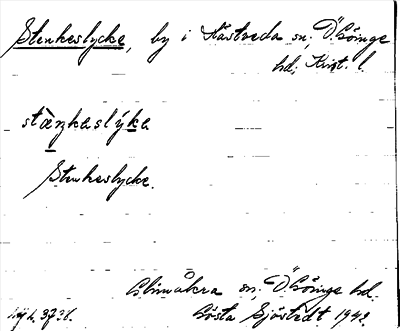 Stenkeslycke, by i Hästveda sn; Ö Göinge
hd; Krist. l.
stæ̀ŋkaslýka
Stenkeslycke.
Glimåkra sn. Ö Göinge hd.
Gösta Sjöstedt 1942.